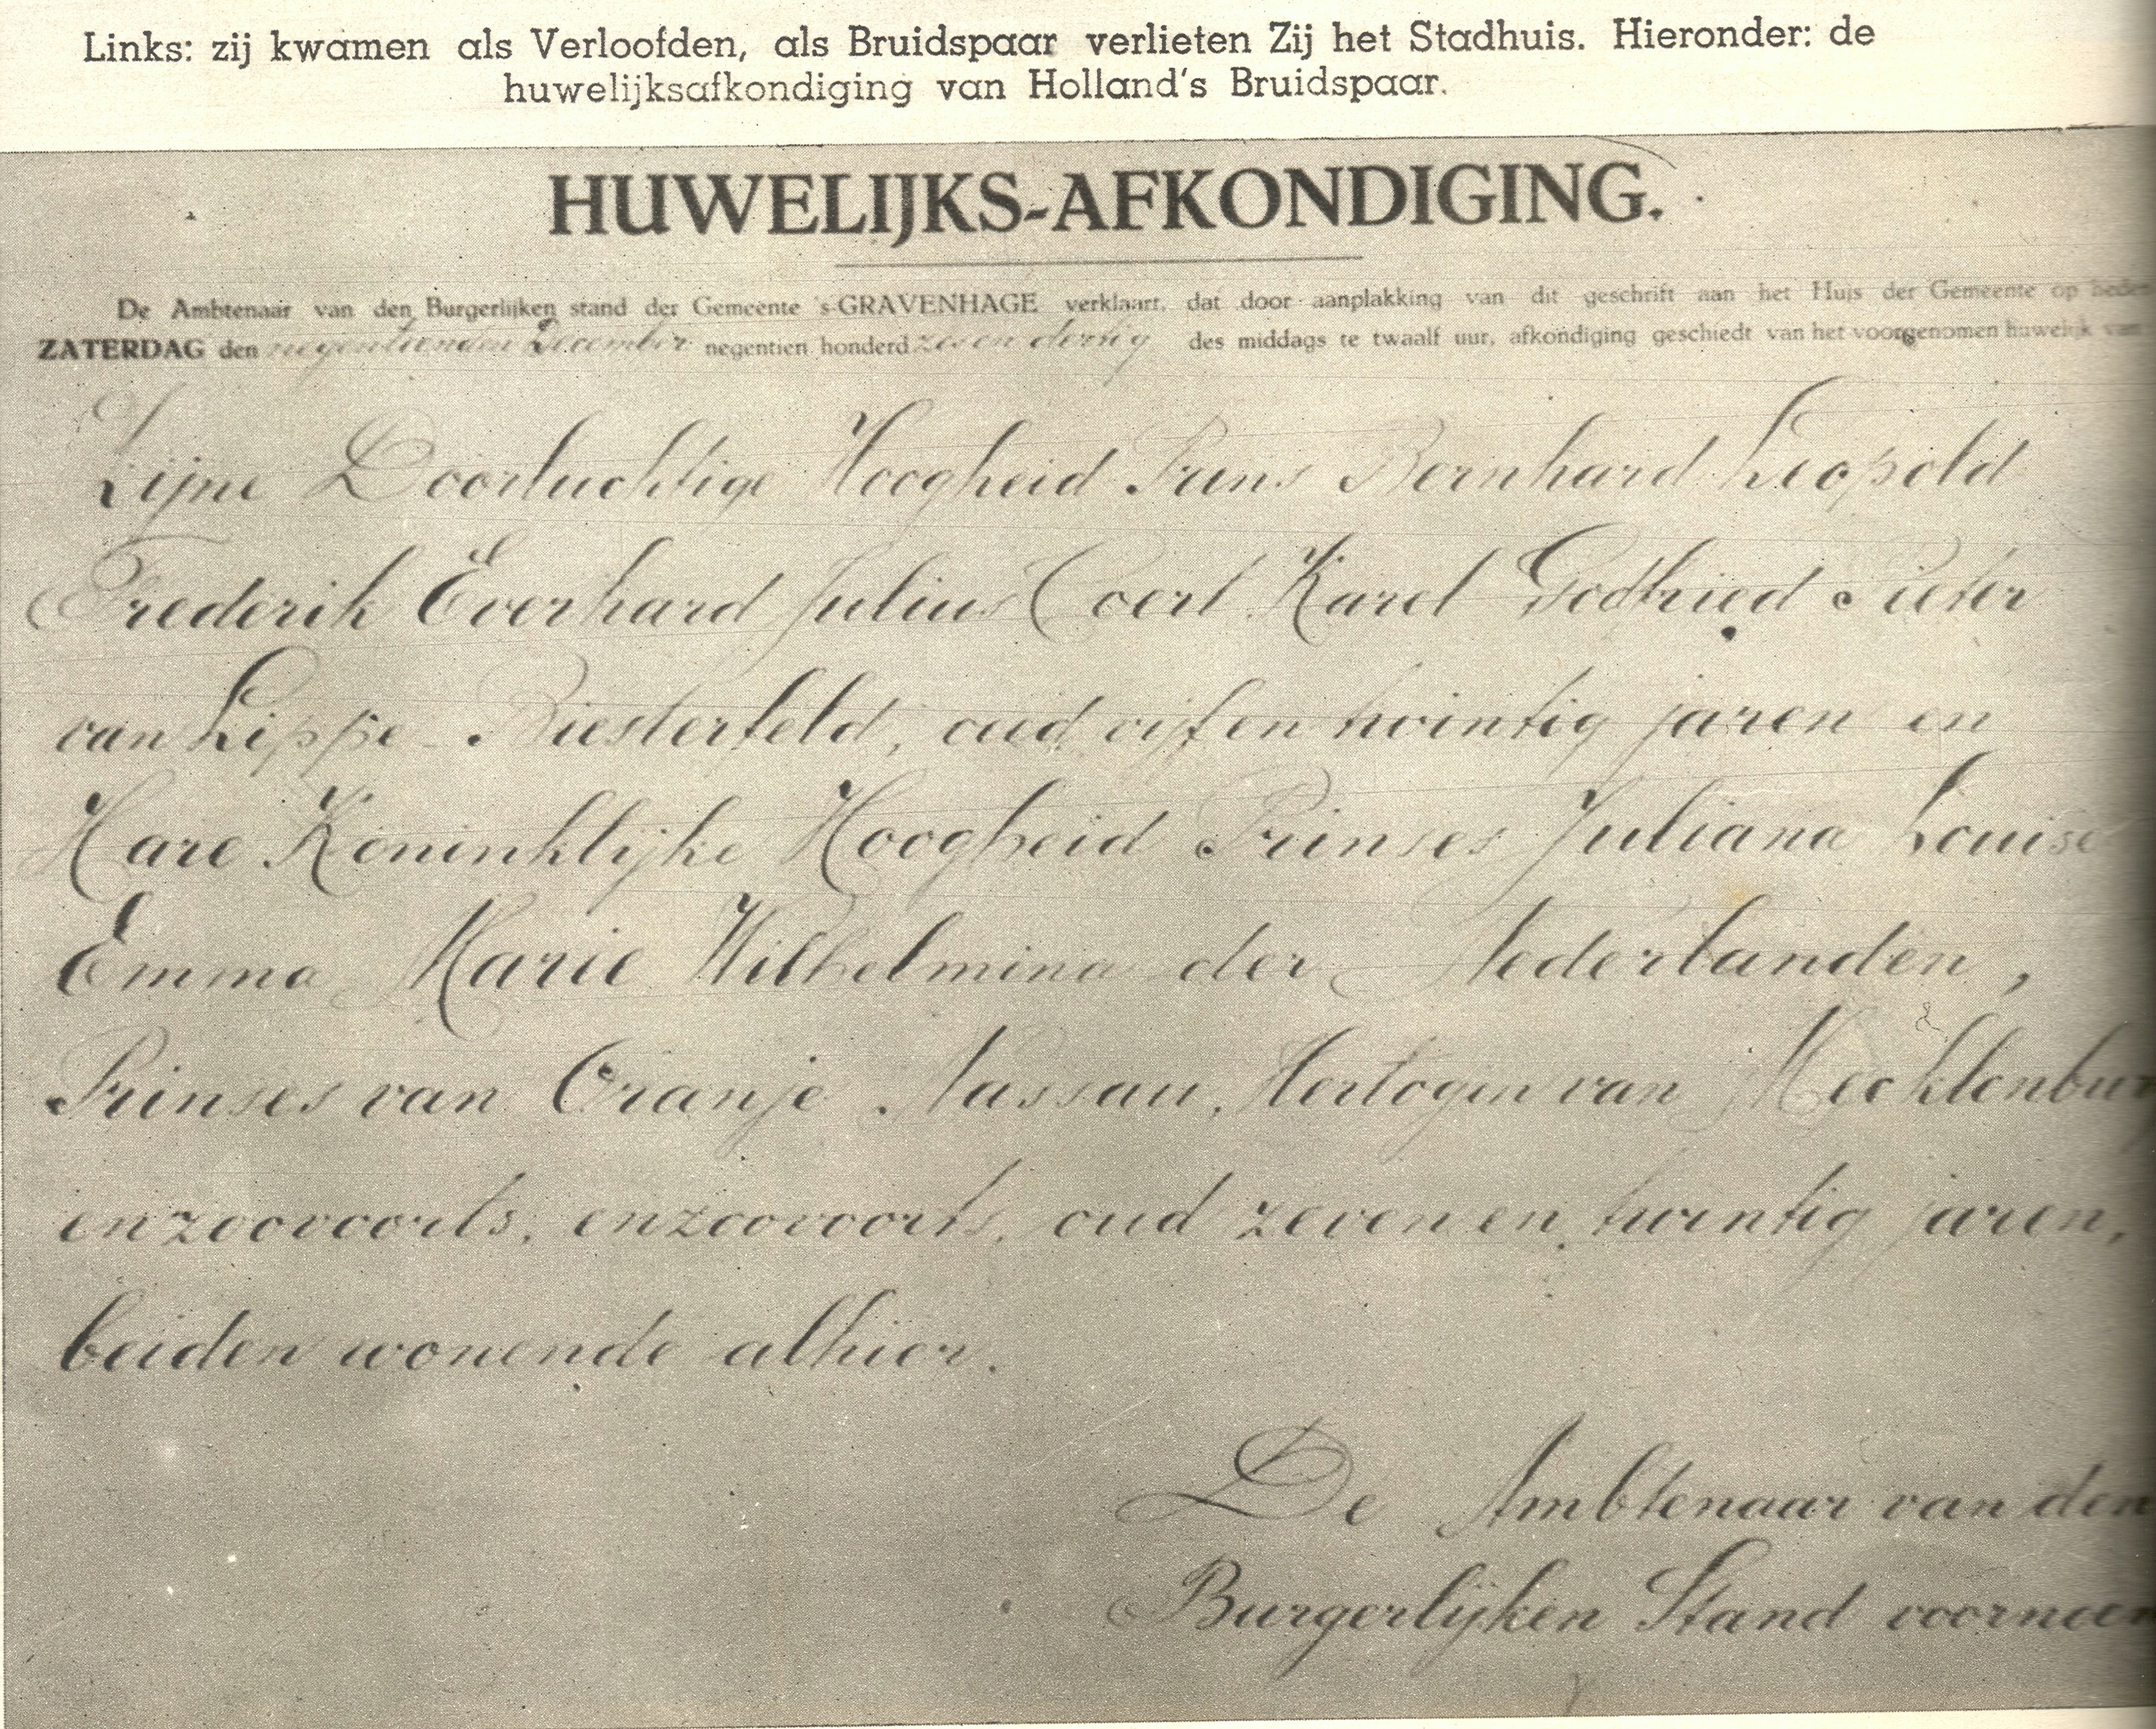 Links: zij kwamen als Verloofden, als Bruidspaar verlieten Zij het Stadhuis. Hieronder: de
huwelijksafkondiging van Holland's Bruidspaar.
HUWELIJKS-AFKONDIGING.
De Ambtenaar van den Burgerlijken stand der Gemeente 's-GRAVENHAGE verklaart, dat door aanplakking van dit geschrift aan het Huis der Gemeente op heden
ZATERDAG den negentienden December negentien honderd zes en dertig des middags te twaalf uur, afkondiging geschiedt van het voorgenomen huwelijk van
Zijne Doorluchtige Hoogheid Prins Bernhard Leopold
Frederik Everhard Julius Coert Karel Godfried Pieter
van Lippe-Biesterfeld, oud vijf en twintig jaren en
Hare Koninklijke Hoogheid Prinses Juliana Louise
Emma Marie Wilhelmina der Nederlanden,
Prinses van Oranje Nassau, Hertogin van Mecklenbur
enzoovoorts, enzoovoorts, oud zeven en twintig jaren,
beiden wonende alhier.
De Ambtenaar van den
Burgerlijken Stand voornoem